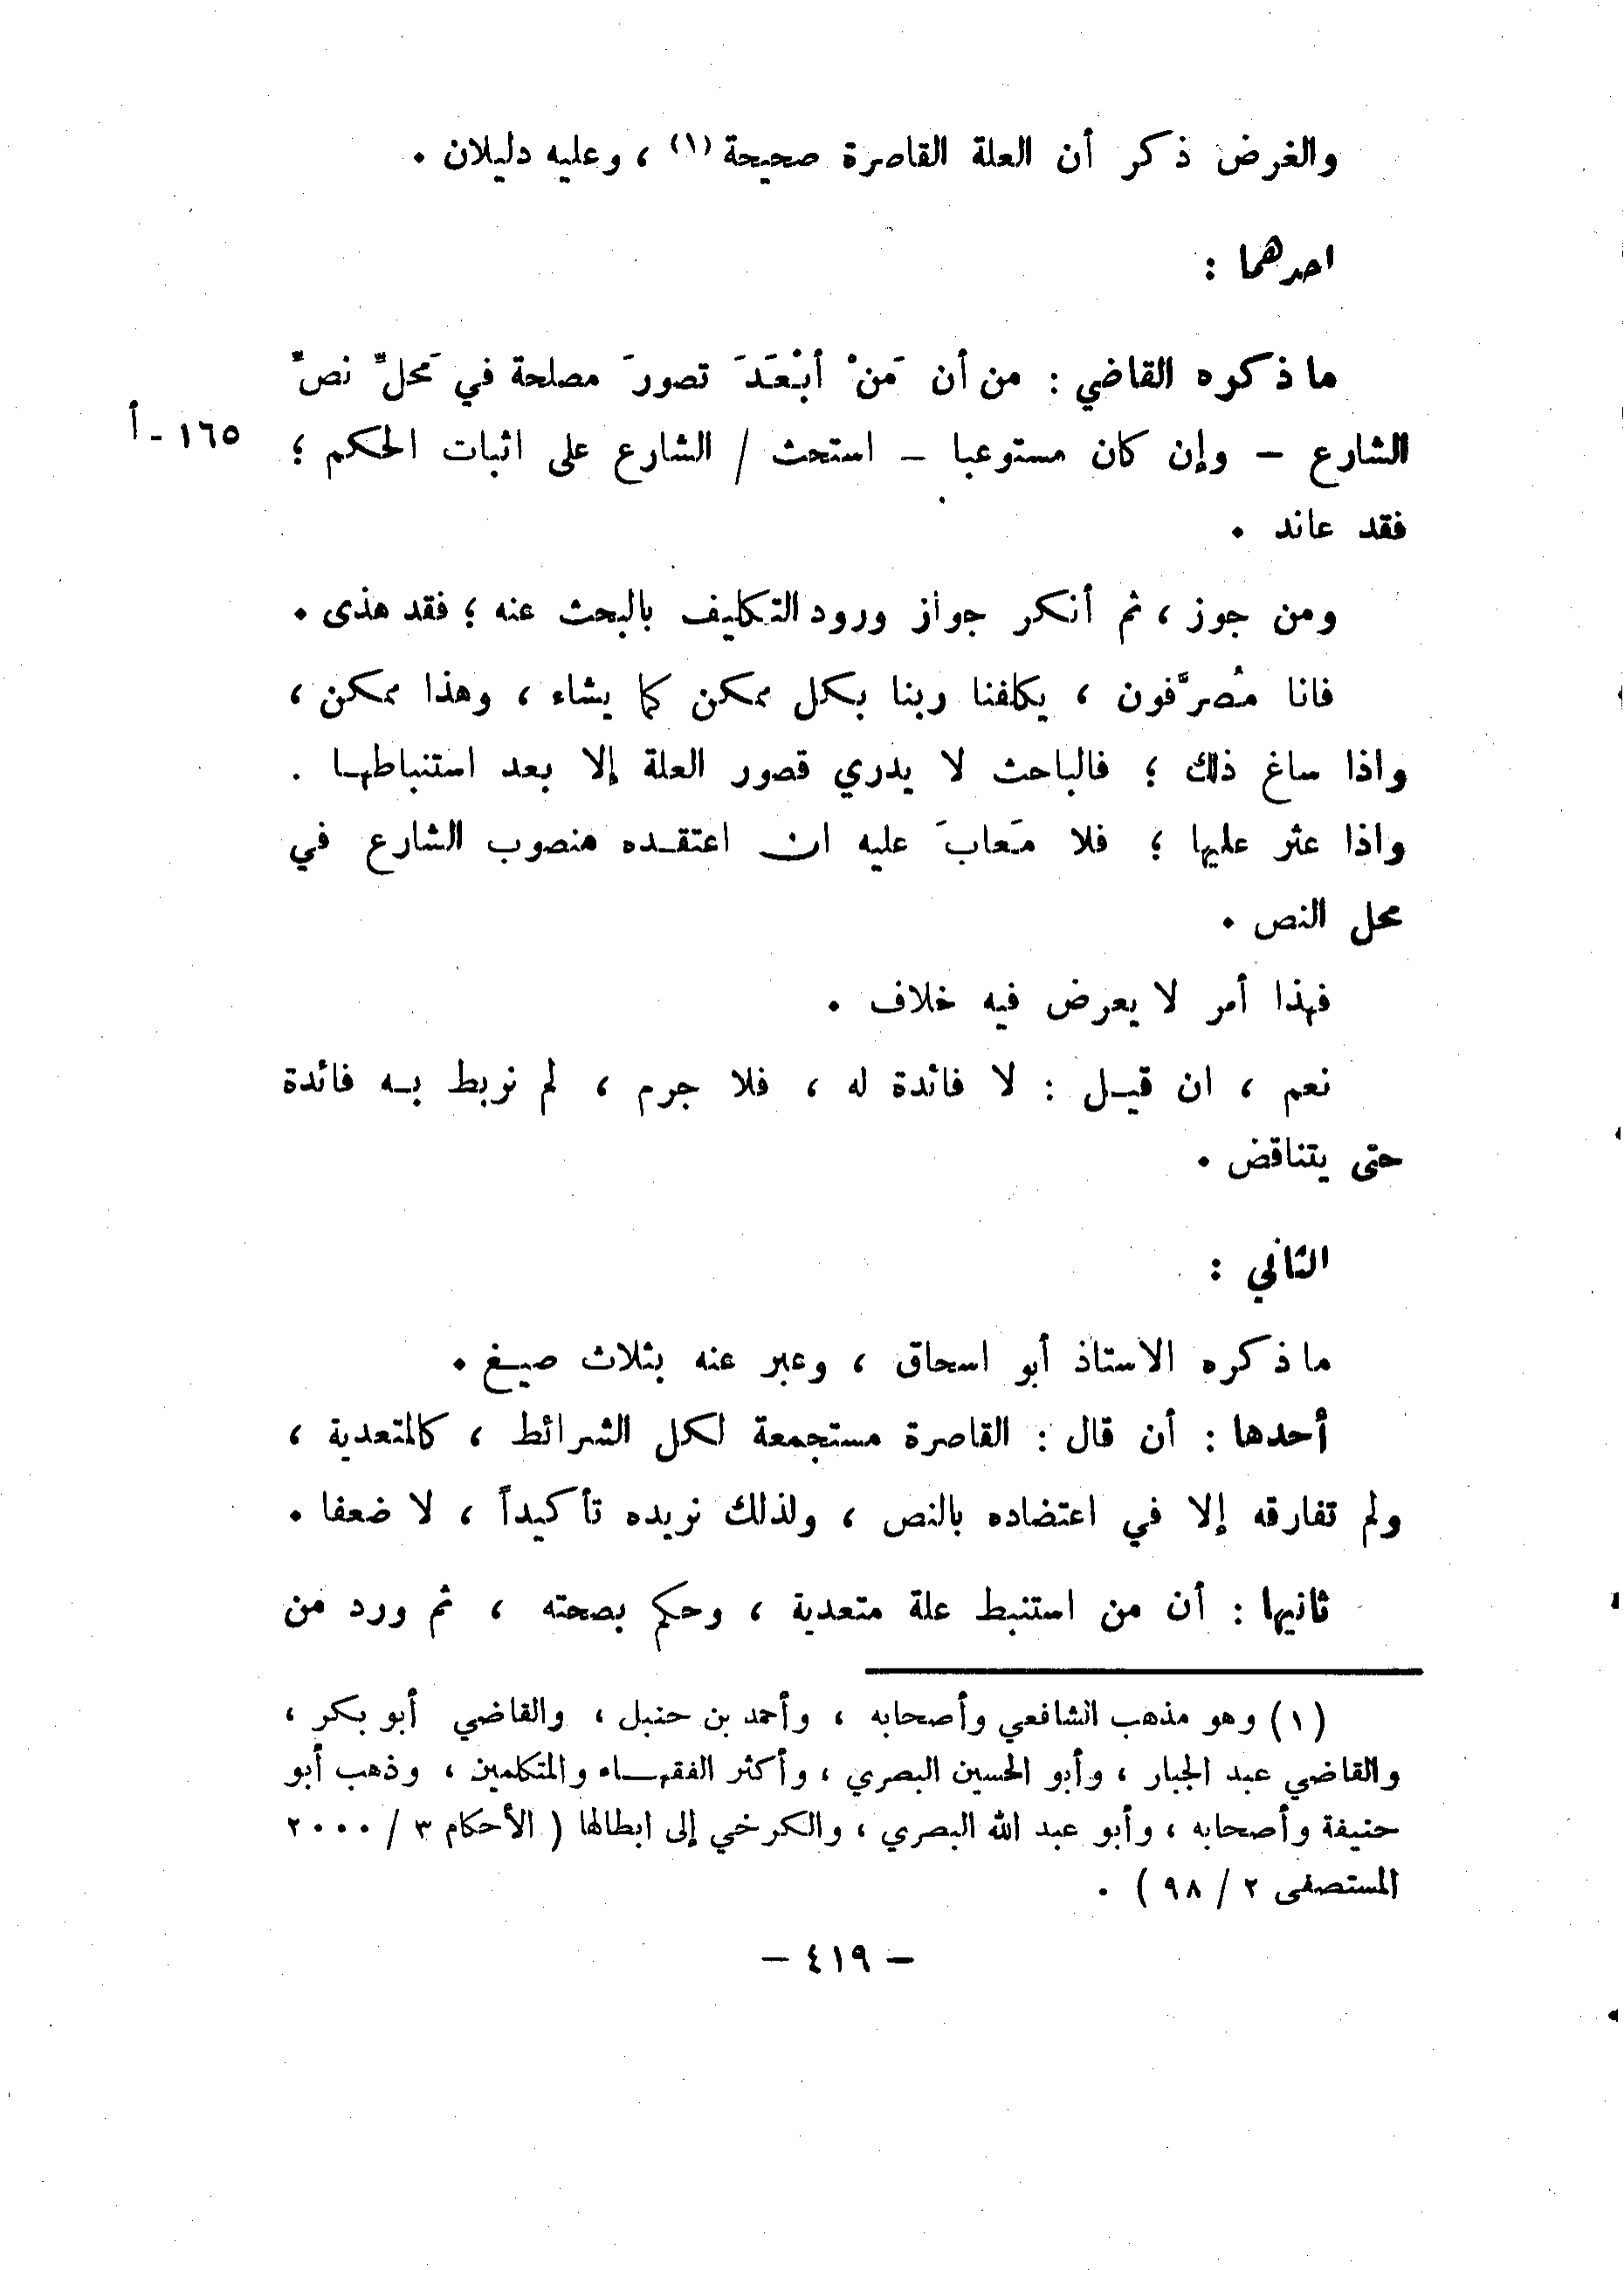 والغرض ذكر أن العلة القاصرة صحيحة (١) ، وعليه دليلان .
احدهما :
ما ذكره القاضي : من أن مَنْ أبْعَدَ تصورَ مصلحة في مَحلِّ نصِّ
الشارع – وإن كان مستوعبا – استحث / الشارع على اثبات الحكم ؛
١٦٥ - أ
فقد عاند .
ومن جوز ، ثم أنكر جواز ورود التكليف بالبحث عنه ؛ فقد هذى .
فانا مُصرَّفون ، يكلفنا ربنا بكل ممكن كما يشاء ، وهذا ممكن ،
واذا ساغ ذلك ؛ فالباحث لا يدري قصور العلة إلا بعد استنباطها .
واذا عثر عليها ؛ فلا مَعابَ عليه ان اعتقده منصوب الشارع في
محل النص .
فهذا أمر لا يعرض فيه خلاف .
نعم ، ان قيل : لا فائدة له ، فلا جرم ، لم نربط به فائدة
حتى يتناقض .
الثاني :
ما ذكره الاستاذ أبو اسحاق ، وعبر عنه بثلاث صيغ .
أحدها : أن قال : القاصرة مستجمعة لكل الشرائط ، كالمتعدية ،
ولم تفارقه إلا في اعتضاده بالنص ، ولذلك نريده تأكيداً ، لا ضعفا .
ثانيها : أن من استنبط علة متعدية ، وحكم بصحته ، ثم ورد من
(١) وهو مذهب الشافعي وأصحابه ، وأحمد بن حنبل ، والقاضي أبو بكر ،
والقاضي عبد الجبار ، وأبو الحسين البصري ، وأكثر الفقهاء والمتكلمين ، وذهب أبو
حنيفة وأصحابه ، وأبو عبد الله البصري ، والكرخي إلى ابطالها ( الأحكام ٣ / ٢٠٠٠
المستصفى ٢ / ٩٨ ) .
– ٤١٩ –